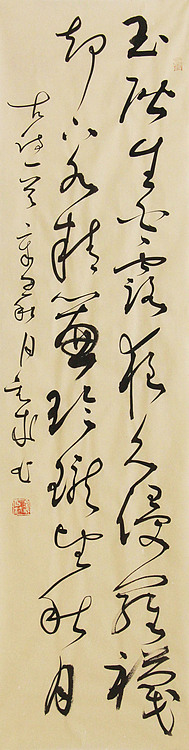 玉階生白露夜久侵羅襪
却下水精簾玲瓏望秋月
古詩一首 秋月 书